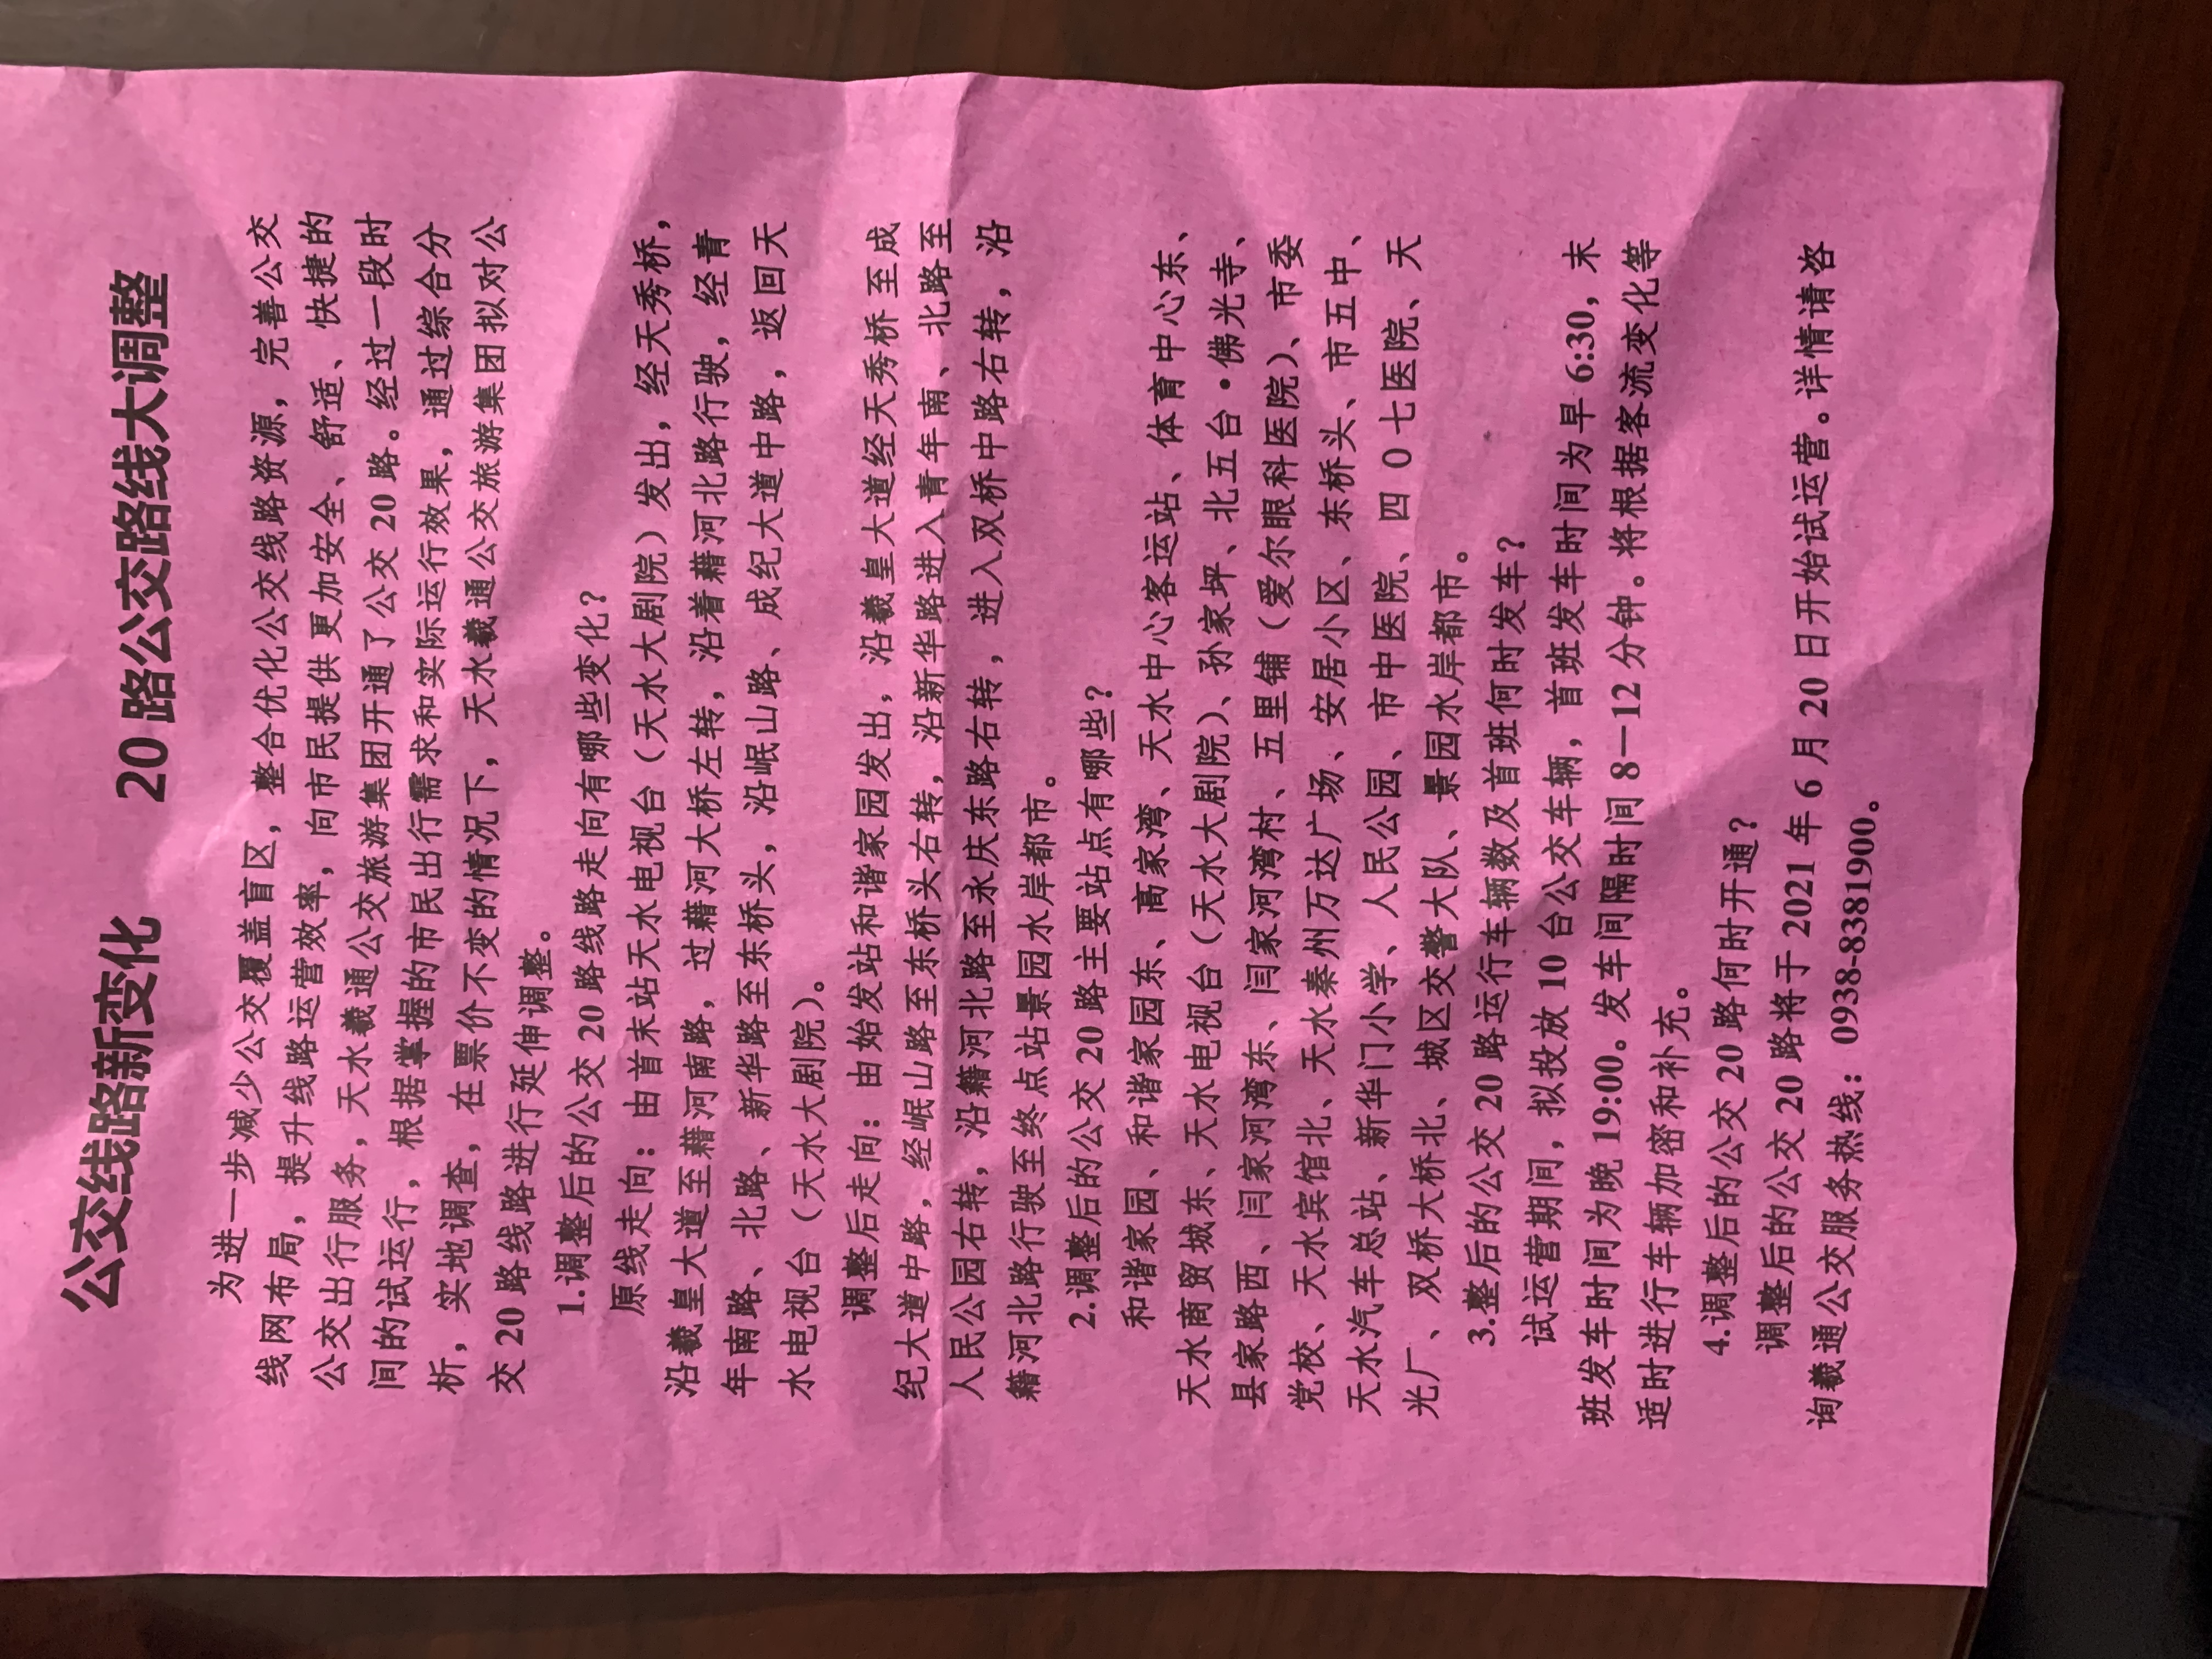 公交线路新变化 20路公交路线大调整
为进一步减少公交覆盖盲区，整合优化公交线路资源，完善公交
线网布局，提升线路运营效率，向市民提供更加安全、舒适、快捷的
公交出行服务，天水羲通公交旅游集团开通了公交 20 路。经过一段时
间的试运行，根据掌握的市民出行需求和实际运行效果，通过综合分
析，实地调查，在票价不变的情况下，天水羲通公交旅游集团拟对公
交 20 路线路进行延伸调整。
1.调整后的公交 20 路线路走向有哪些变化？
原线走向：由首末站天水电视台（天水大剧院）发出，经天秀桥，
沿羲皇大道至藉河南路，过藉河大桥左转，沿着藉河北路行驶，经青
年南路、北路、新华路至东桥头，沿岷山路、成纪大道中路，返回天
水电视台（天水大剧院）。
调整后走向：由始发站和谐家园发出，沿羲皇大道经天秀桥至成
纪大道中路，经岷山路至东桥头右转，沿新华路进入青年南、北路至
人民公园右转，沿籍河北路至永庆东路右转，进入双桥中路右转，沿
籍河北路行驶至终点站景园水岸都市。
2.调整后的公交 20 路主要站点有哪些？
和谐家园、和谐家园东、高家湾、天水中心客运站、体育中心东、
天水商贸城东、天水电视台（天水大剧院）、孙家坪、北五台•佛光寺、
县家路西、闫家河湾东、闫家河湾村、五里铺（爱尔眼科医院）、市委
党校、天水宾馆北、天水秦州万达广场、安居小区、东桥头、市五中、
天水汽车总站、新华门小学、人民公园、市中医院、四０七医院、天
光厂、双桥大桥北、城区交警大队、景园水岸都市。
3.整后的公交 20 路运行车辆数及首班何时发车？
试运营期间，拟投放 10 台公交车辆，首班发车时间为早 6:30，末
班发车时间为晚 19:00。发车间隔时间 8－12 分钟。将根据客流变化等
适时进行车辆加密和补充。
4.调整后的公交 20 路何时开通？
调整后的公交 20 路将于 2021 年 6 月 20 日开始试运营。详情请咨
询羲通公交服务热线：0938-8381900。